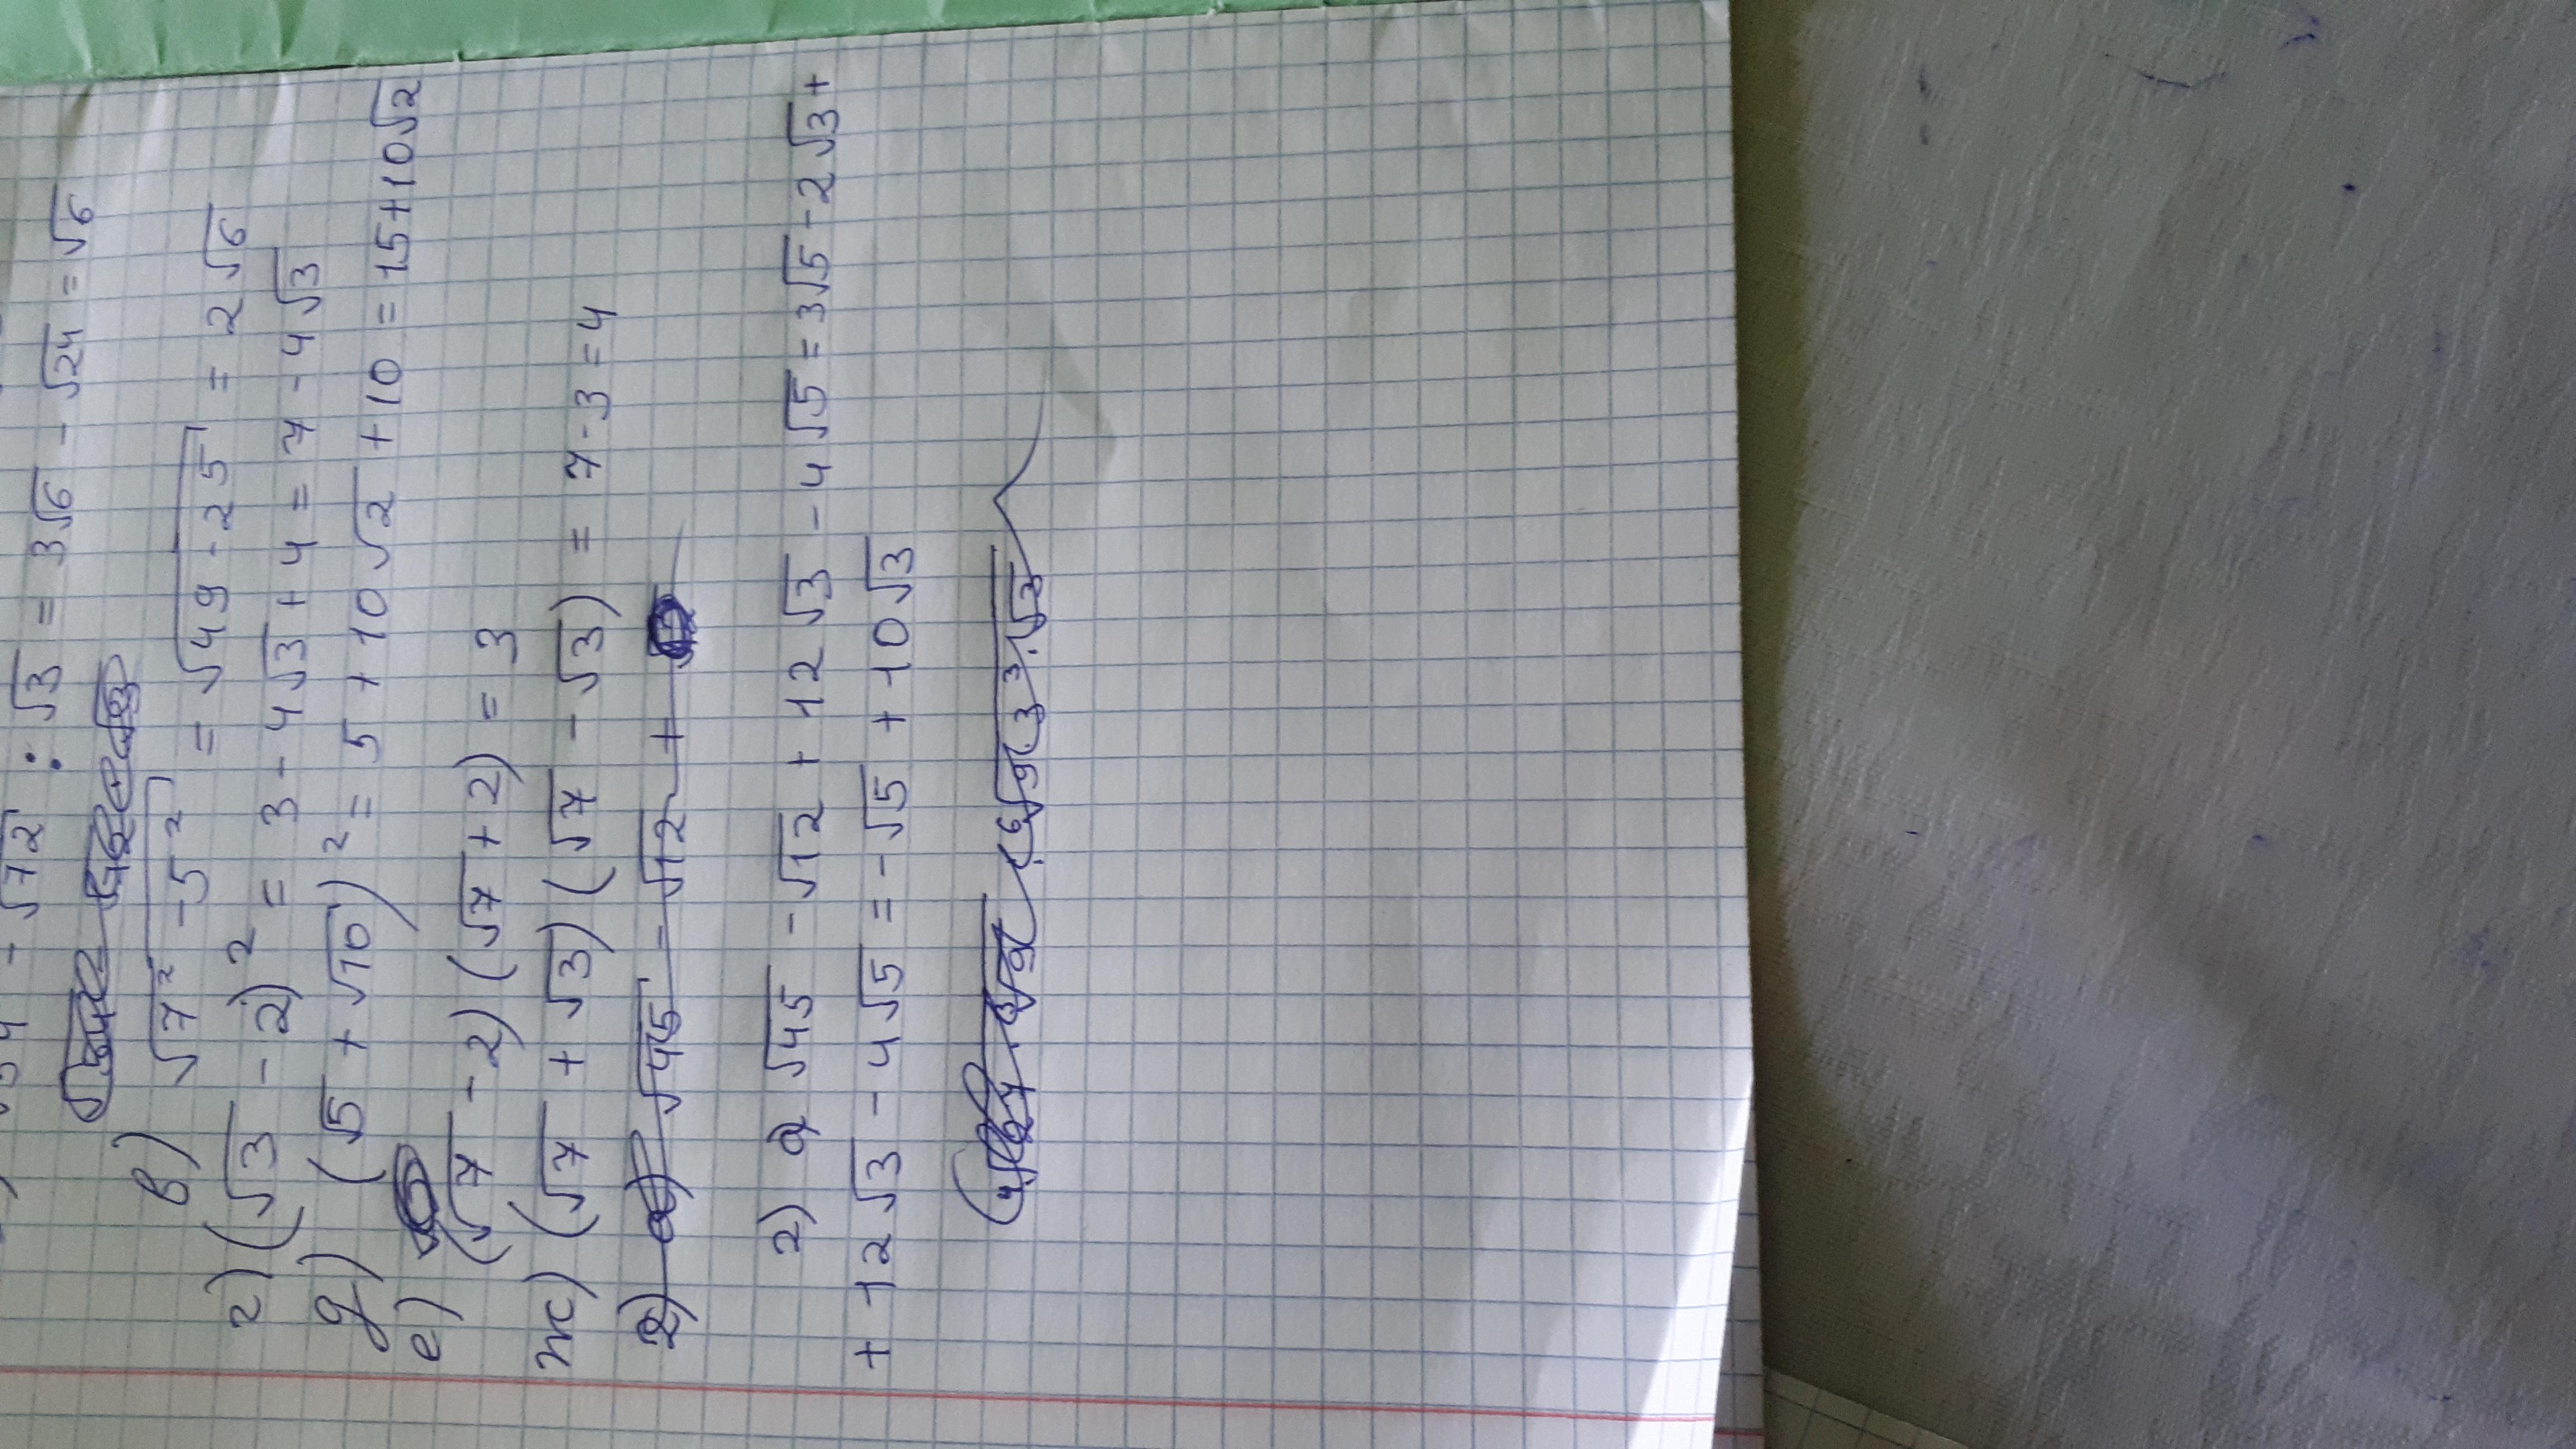 - √72 : √3 = 3√6 - √24 = √6
в) √7² - 5² = √49 - 25 = 2√6
г) (√3 - 2)² = 3 - 4√3 + 4 = 7 - 4√3
д) (√5 + √10)² = 5 + 10√2 + 10 = 15 + 10√2
е) (√7 - 2) (√7 + 2) = 3
ж) (√7 + √3) (√7 - √3) = 7 - 3 = 4
2) а) √45 - √12 +
2) а √45 - √12 + 12√3 - 4√5 = 3√5 - 2√3 +
+ 12√3 - 4√5 = -√5 + 10√3